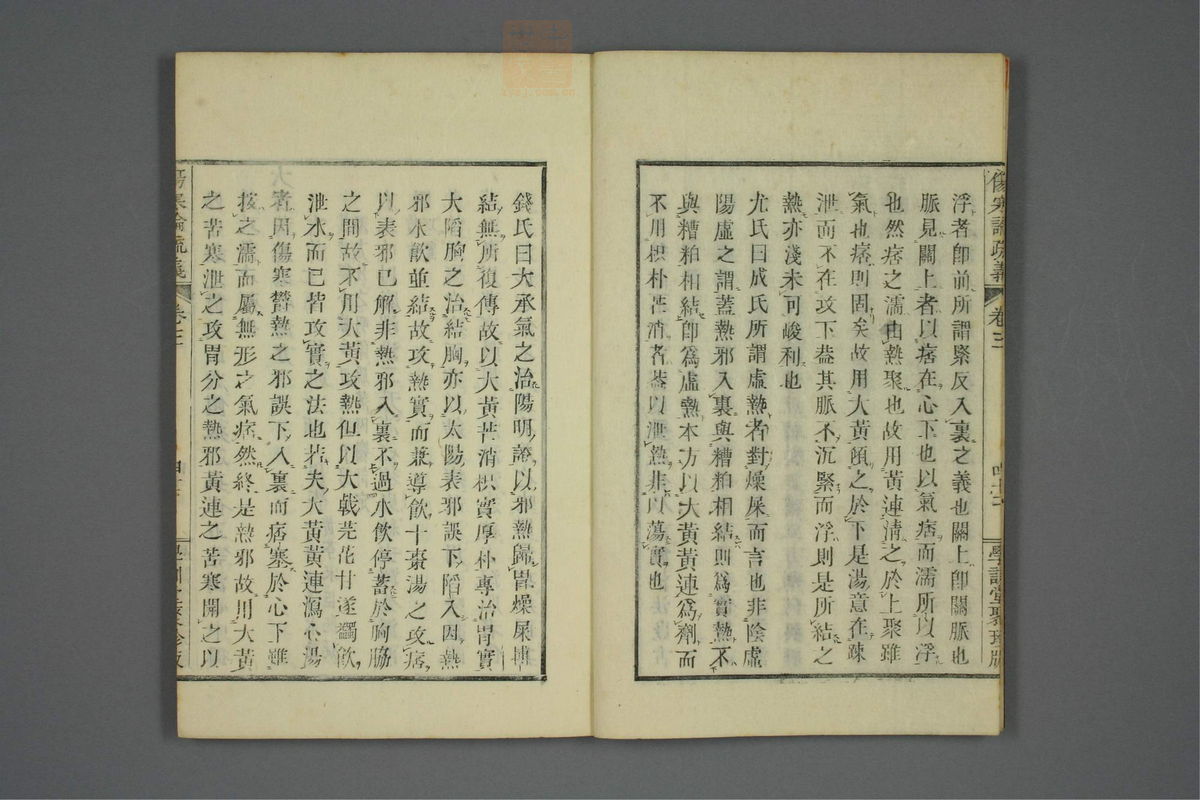 傷寒論疏義 卷三 學訓堂聚珍版
浮者即前所謂緊反入裏之義也關上即關脈也
脈見關上者以痞在心下也以氣痞而濡所以浮
也然痞之濡由熱聚也故用黃連清之於上聚雖
氣也痞則固矣故用大黃傾之於下是湯意在疎
泄而不在攻下葢其脈不沉緊而浮則是所結之
熱亦淺未可峻利也
尤氏曰成氏所謂虛熱者對燥屎而言也非陰虛
陽虛之謂葢熱邪入裏與糟粕相結則爲實熱不
與糟粕相結即爲虛熱本方以大黃黃連爲劑而
不用枳朴芒消者葢以泄熱非以蕩實也
錢氏曰大承氣之治陽明證以邪熱歸胃燥屎摶
結無所複傳故以大黃芒消枳實厚朴專治胃實
大陷胸之治結胸亦以太陽表邪誤下陷入因熱
邪水飮並結故攻熱實而兼導飮十棗湯之攻痞
以表邪已解非熱邪入裏不過水飮停蓄於胸脇
之間故不用大黃攻熱但以大戟芫花甘遂蠲飮
泄水而已皆攻實之法也若夫大黃黃連瀉心湯
者因傷寒鬱熱之邪誤下入裏而痞塞於心下雖
按之濡而屬無形之氣痞然終是熱邪故用大黃
之苦寒泄之攻胃分之熱邪黃連之苦寒開之以
傷寒論疏義 卷三